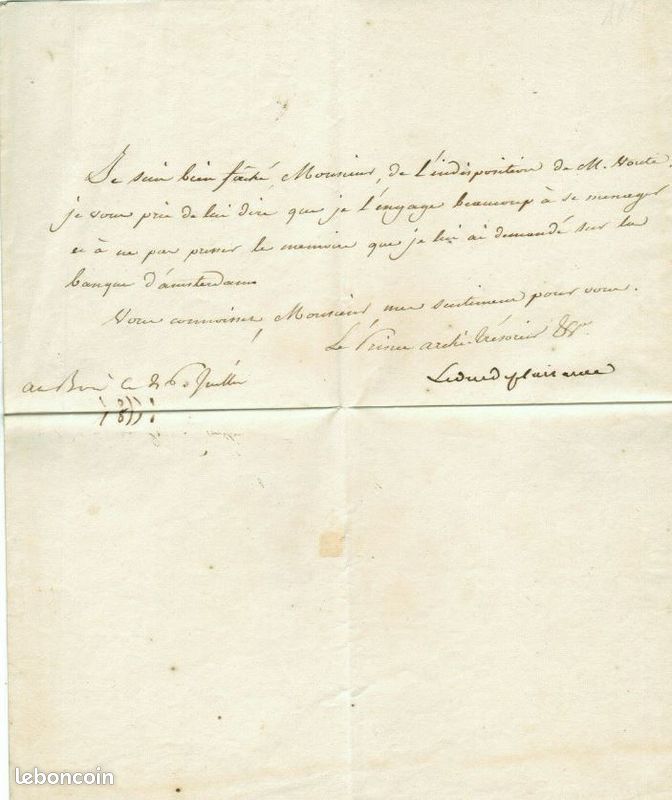 Je suis bien fâché, Monsieur, de l'indisposition de M. Voute,
je vous prie de lui dire que je l'engage beaucoup à se menager
et à ne pas presser le memoire que je lui ai demandé sur la
banque d'amsterdam
Vous connoissez, Monsieur, mes sentimens pour vous.
Le Prince archi-trésorier
au ce 26 Juillet
1811
Le duc de plaisance
leboncoin